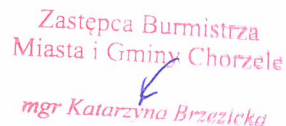 Zastępca Burmistrza
Miasta i Gminy Chorzele
mgr Katarzyna Brzezicka